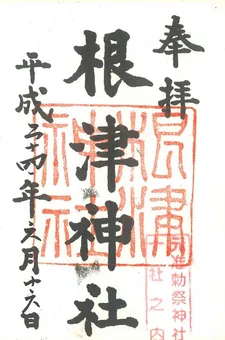 奉拝
根津神社
平成二十四年六月十六日
根津神社
准勅祭神社
社之内